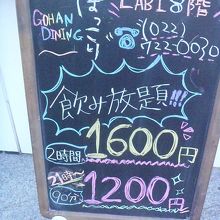 GOHAN
DINING
LABI 8階
☎ (022)
722-0030
飲み放題!!!
2時間 1600円
21時〜
90分 1200円